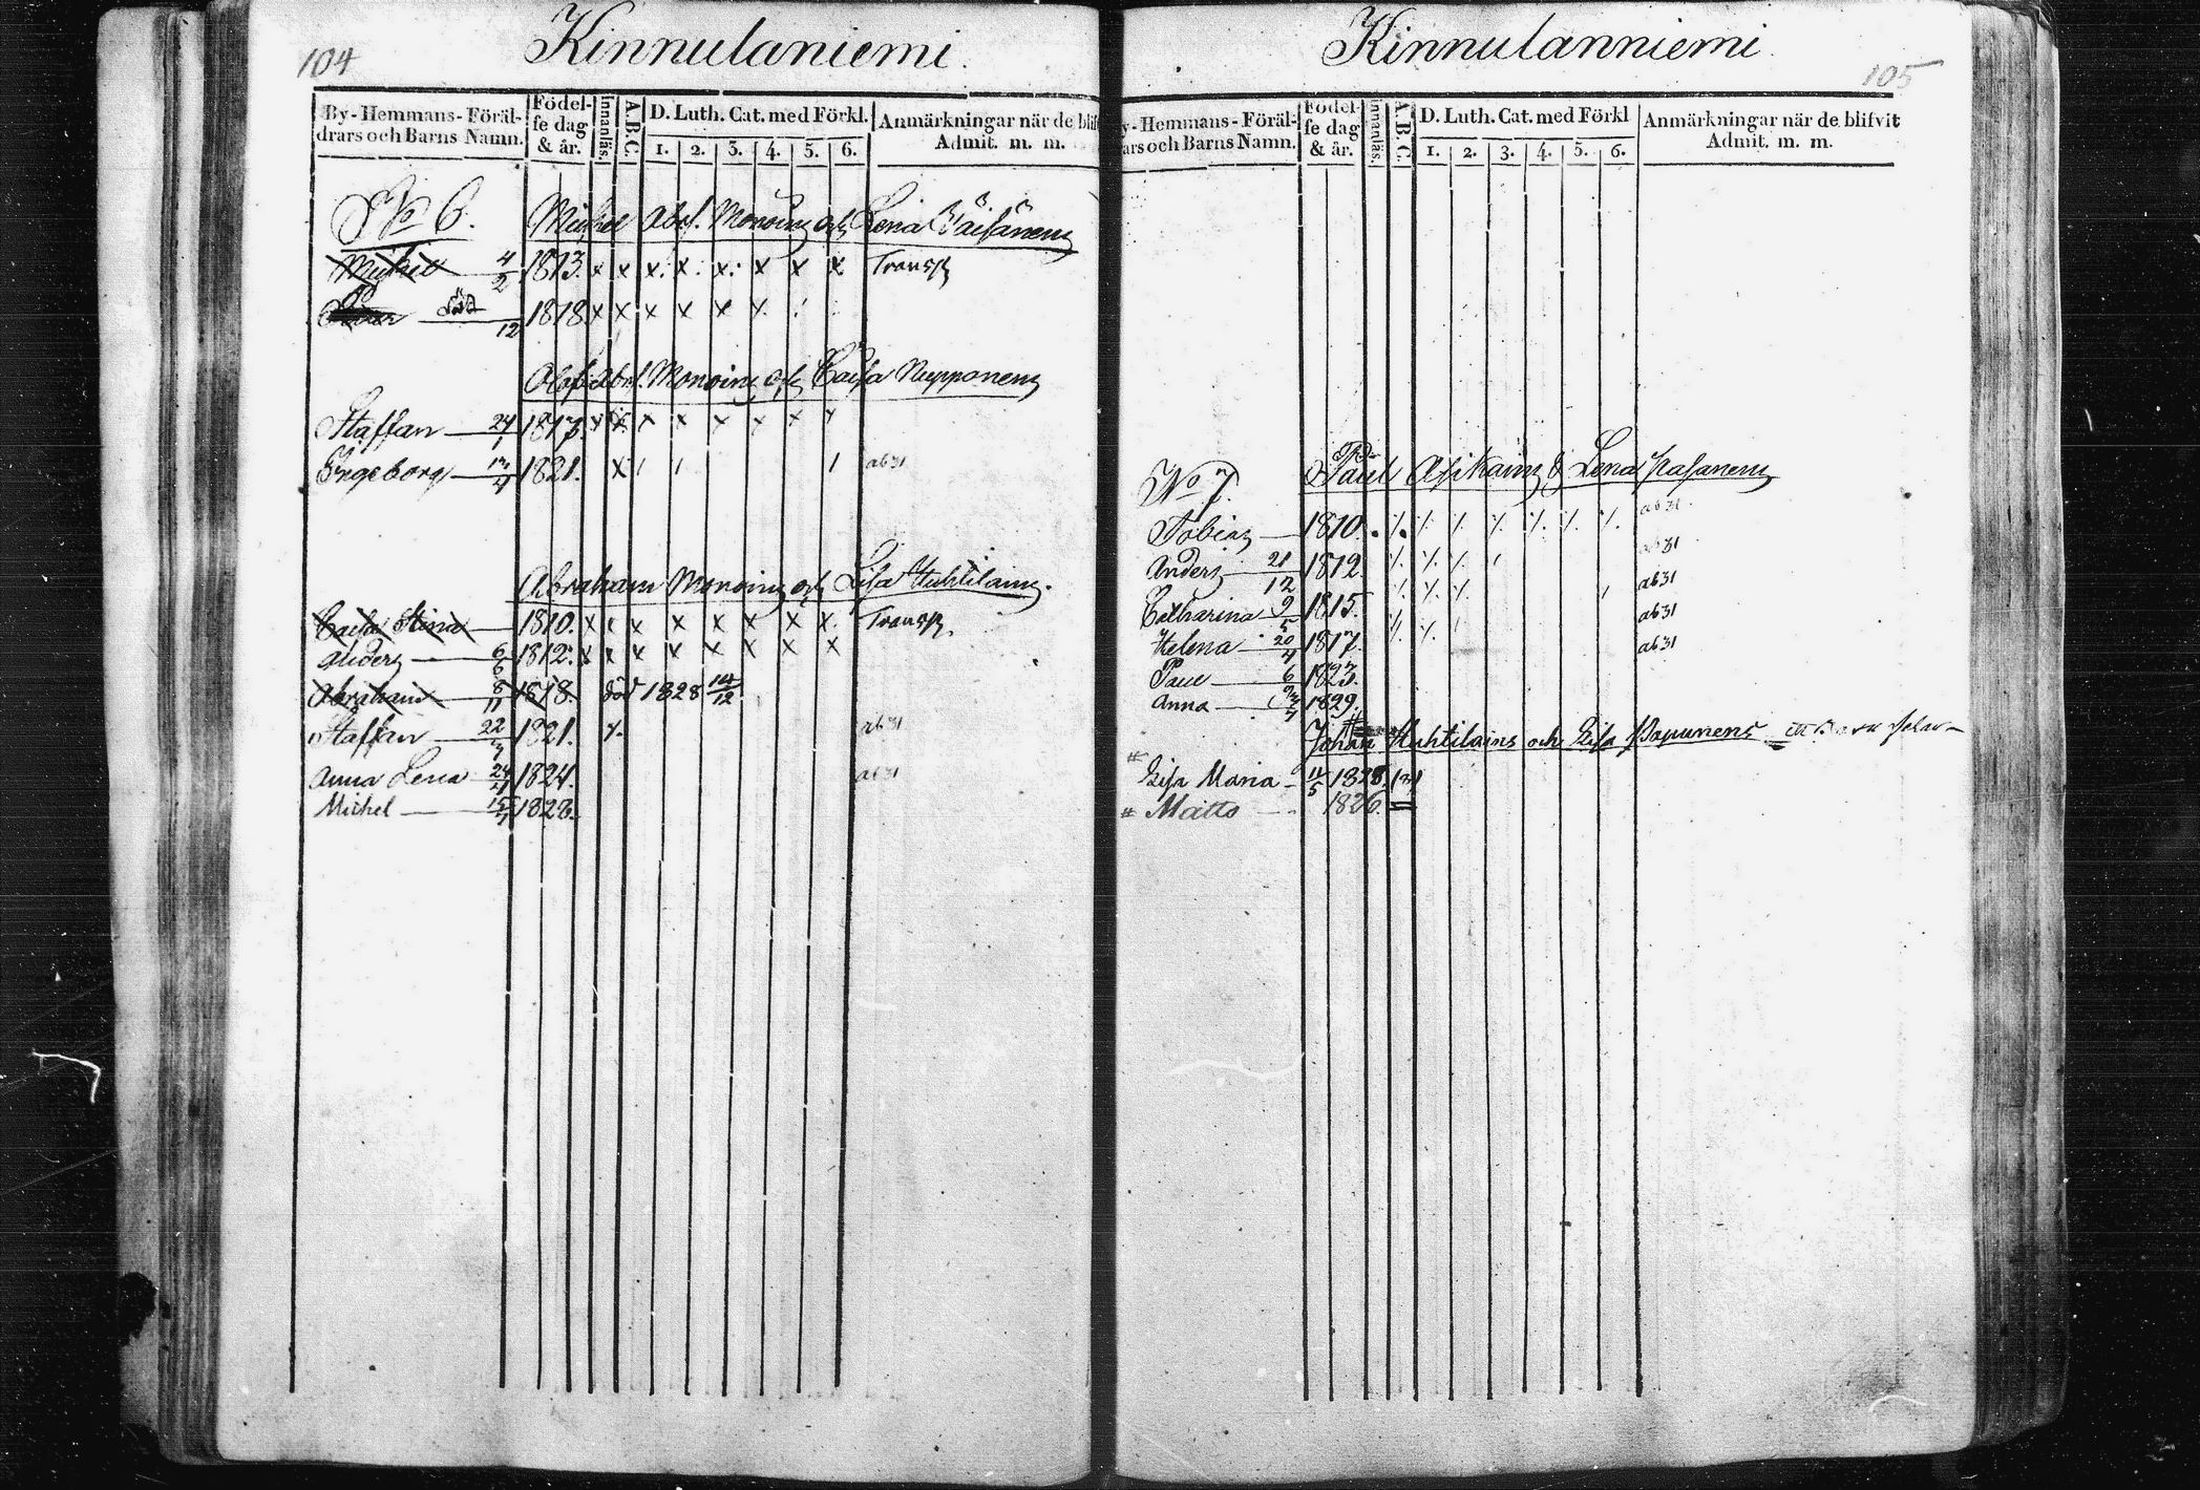 104
Kinnulaniemi.
By-Hemmans-Föräl-
drars och Barns Namn.
Födel-
se dag
& år.
Innanläs.
A.B.C.
D. Luth. Cat. med Förkl.
1. 2. 3. 4. 5. 6.
Anmärkningar när de blif
Admit. m. m.
No 6. Michel Abrs. Monoin och Lena Räisänen
Michel 4/2 1813. x x x x x x x x Transp
död 12 1818 x x x x x x
Olof Abrs. Monoin och Caisa Nupponen
Staffan 24/1 1817. x x x x x x x x
Ingeborg 1821. x ab 31
Abraham Monoin och Lisa Huhtilain.
Caisa Stina 1810. x x x x x x x x Transp.
Anders 6/6 1812. x x x x x x x x
Abraham 8/11 1818. död 1828 14/12
Staffan 22 1821. ab 31
Anna Lena 24/4 1824. ab 31
Michel 1828.
Kinnulanniemi
105
y-Hemmans-Föräl-
ars och Barns Namn.
Födel-
se dag
& år.
Innanläs.
A.B.C.
D. Luth. Cat. med Förkl
1. 2. 3. 4. 5. 6.
Anmärkningar när de blifvit
Admit. m. m.
No 7. Paul Asikain & Lena Hasanen
Tobias 1810. ab 31.
Anders 21/12 1812. ab 31
Catharina 9/5 1815. ab 31
Helena 20/4 1817. ab 31
Paul 6 1823. ab 31
Anna 1829.
Johan Huhtilains och Lisa Papunens
# Lisa Maria 11/5 1828.
# Matts 1826.